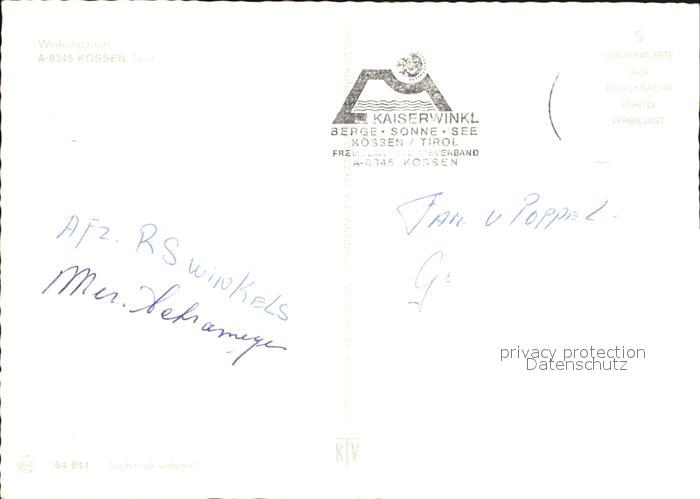 Wintersportort
A-6345 KÖSSEN, Tirol
KAISERWINKL
BERGE · SONNE · SEE
KÖSSEN / TIROL
FREMDENVERKEHRSVERBAND
A-6345 KÖSSEN
5
GRUSSWORTE
ALS
DRUCKSACHE
PORTO
VERBILLIGT
FAM. V POPPEL.
G
AFZ. RS WINKELS
Mer.
privacy protection
Datenschutz
64 841 Nachdruck verboten
KTV